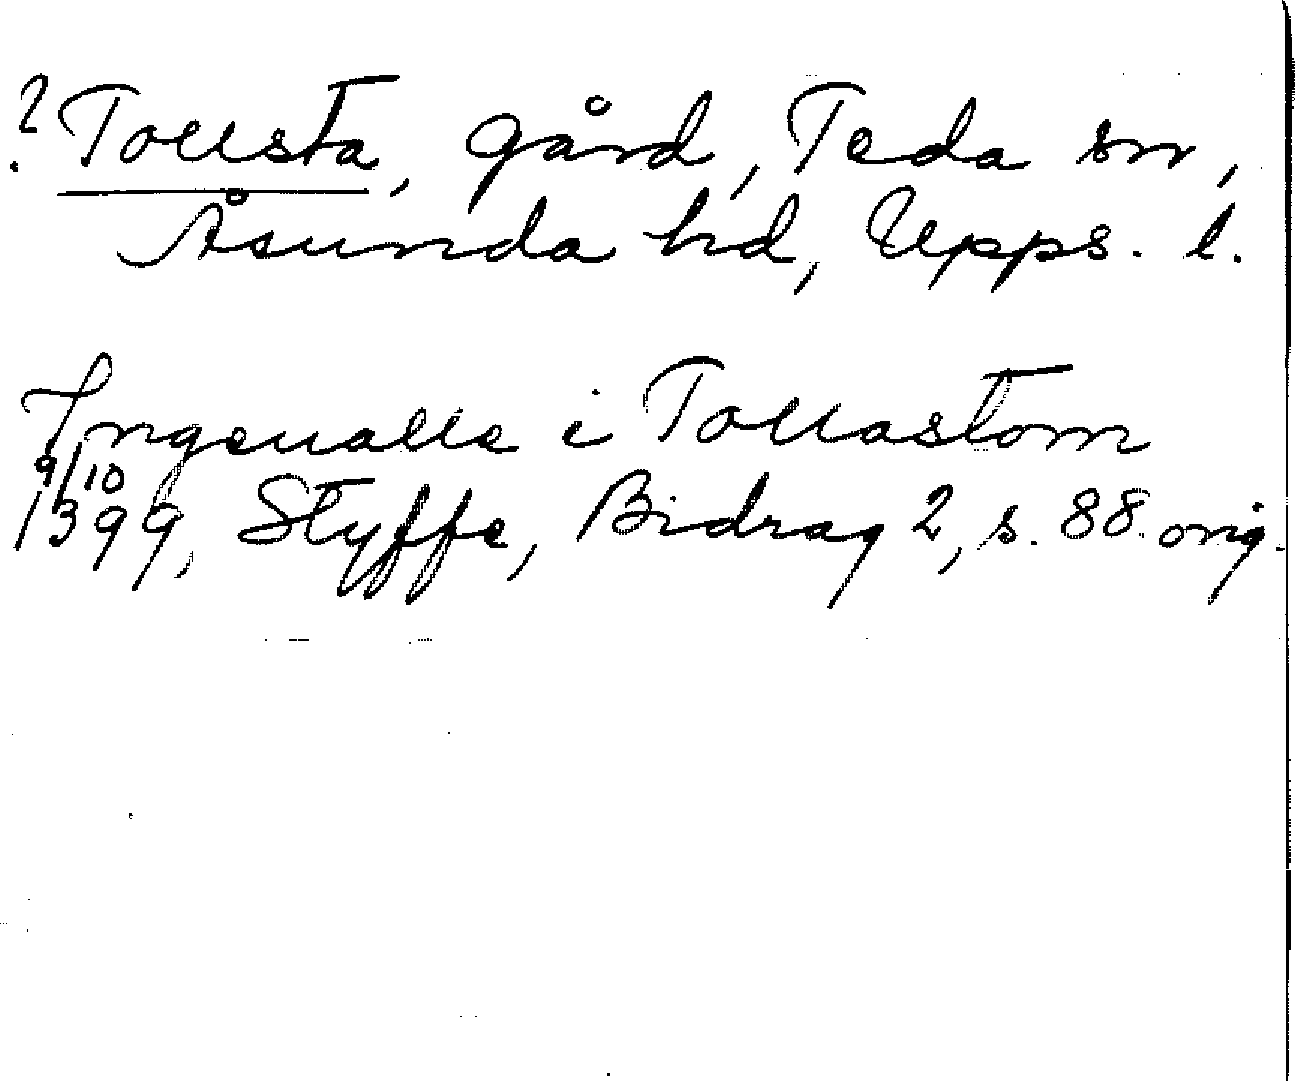 ? Tollsta, gård, Teda sn,
Åsunda hd, Upps. l.
Ingeualle i Tollastom
9/10
1399, Styffe, Bidrag 2, s. 88. orig.